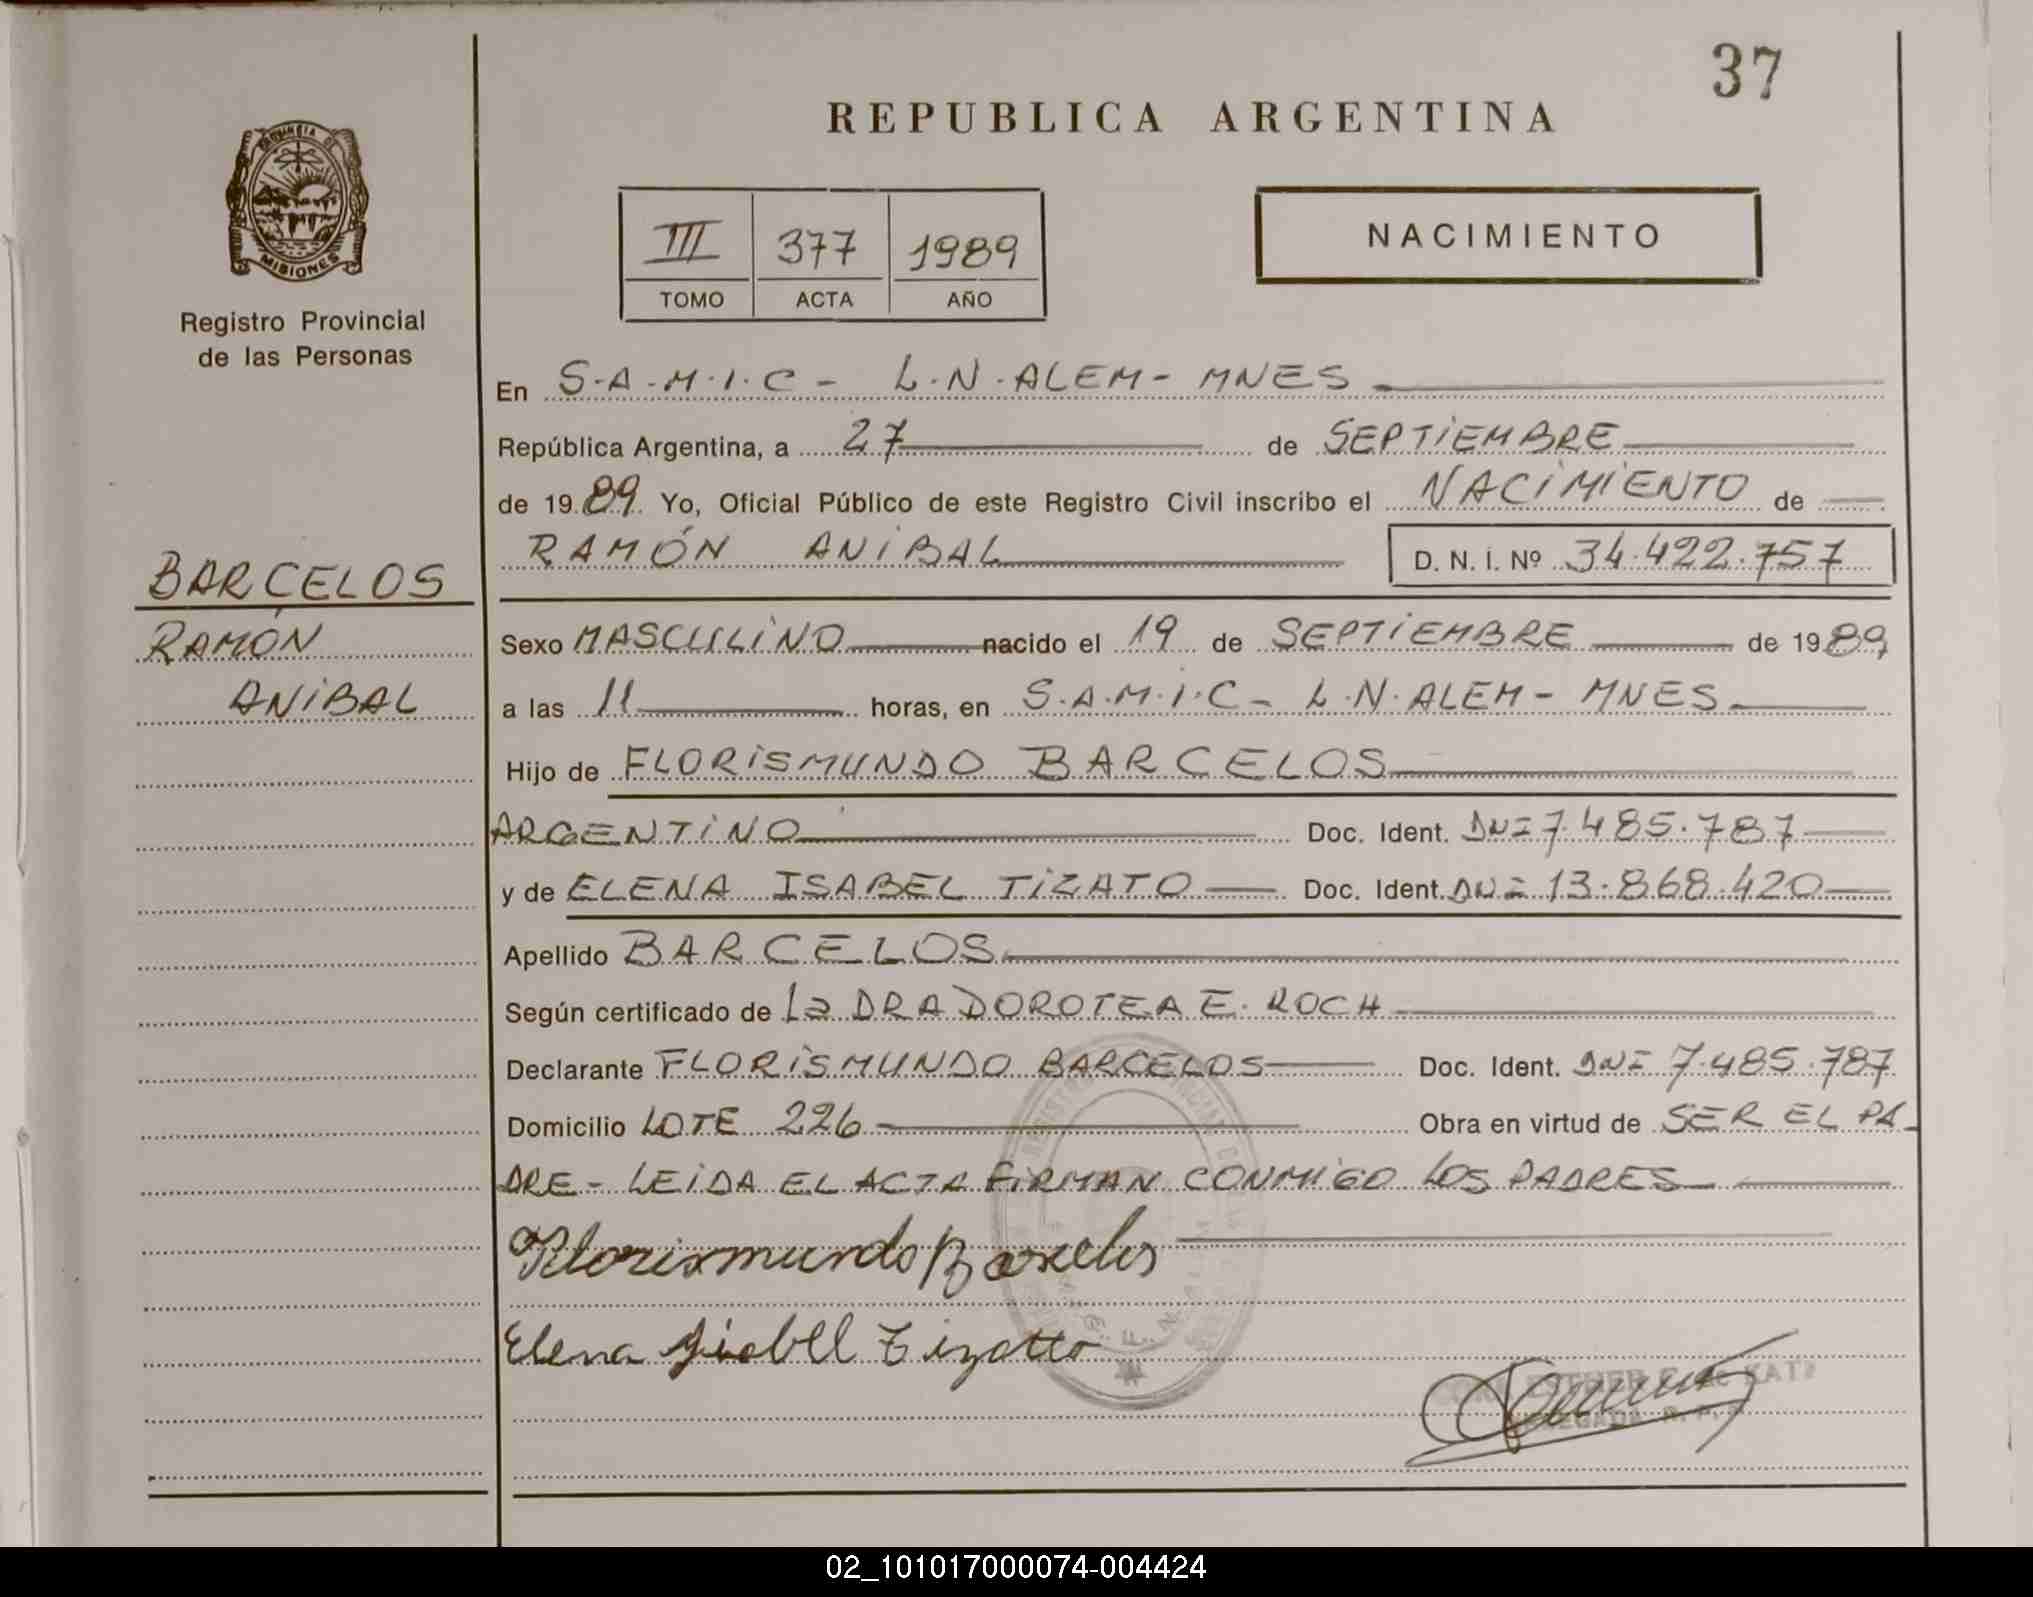 37
REPUBLICA ARGENTINA
PROVINCIA DE
MISIONES
Registro Provincial
de las Personas
III 377 1989
TOMO ACTA AÑO
NACIMIENTO
En S.A.M.I.C - L.N.ALEM - MNES
República Argentina, a 27 de SEPTIEMBRE
de 1989 Yo, Oficial Público de este Registro Civil inscribo el NACIMIENTO de
RAMÓN ANIBAL D. N. I. Nº 34.422.757
BARCELOS
RAMÓN
ANIBAL
Sexo MASCULINO nacido el 19 de SEPTIEMBRE de 1989
a las 11 horas, en S.A.M.I.C - L.N.ALEM - MNES
Hijo de FLORISMUNDO BARCELOS
ARGENTINO Doc. Ident. DNI 7.485.787
y de ELENA ISABEL TIZATO Doc. Ident. DNI 13.868.420
Apellido BARCELOS
Según certificado de La DRA DOROTEA E. ROCH
Declarante FLORISMUNDO BARCELOS Doc. Ident. DNI 7.485.787
Domicilio LOTE 226 Obra en virtud de SER EL PA-
DRE - LEIDA EL ACTA FIRMAN CONMIGO LOS PADRES
Florismundo Barcelos
Elena Isabel Tizatto
ESTHER
02_101017000074-004424